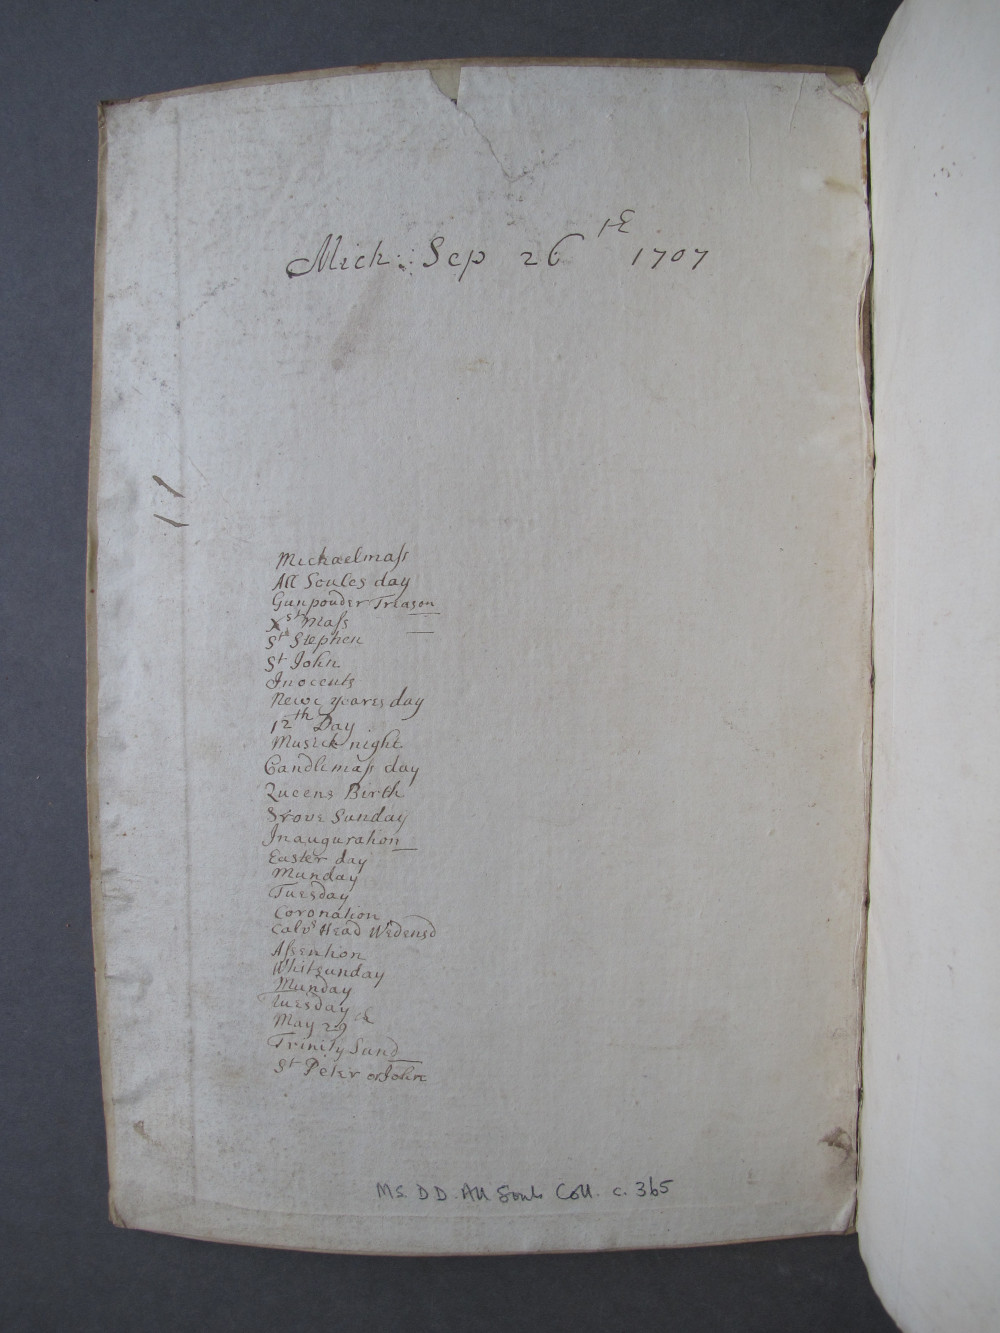 Mich: Sep 26th 1707
Michaelmass
All Soules day
Gunpouder Treason
Xst Mass
St Stephen
St John
Inocents
Newe yeares day
12th Day
Musick night
Candlemass day
Queens Birth
Srove Sunday
Inauguration
Easter day
Munday
Tuesday
Coronation
Calvs Head Wedensd
Assention
Whitsunday
Munday
Tuesday
May 29th
Trinity Sund
St Peter or John
MS. DD. All Souls Coll. c. 365